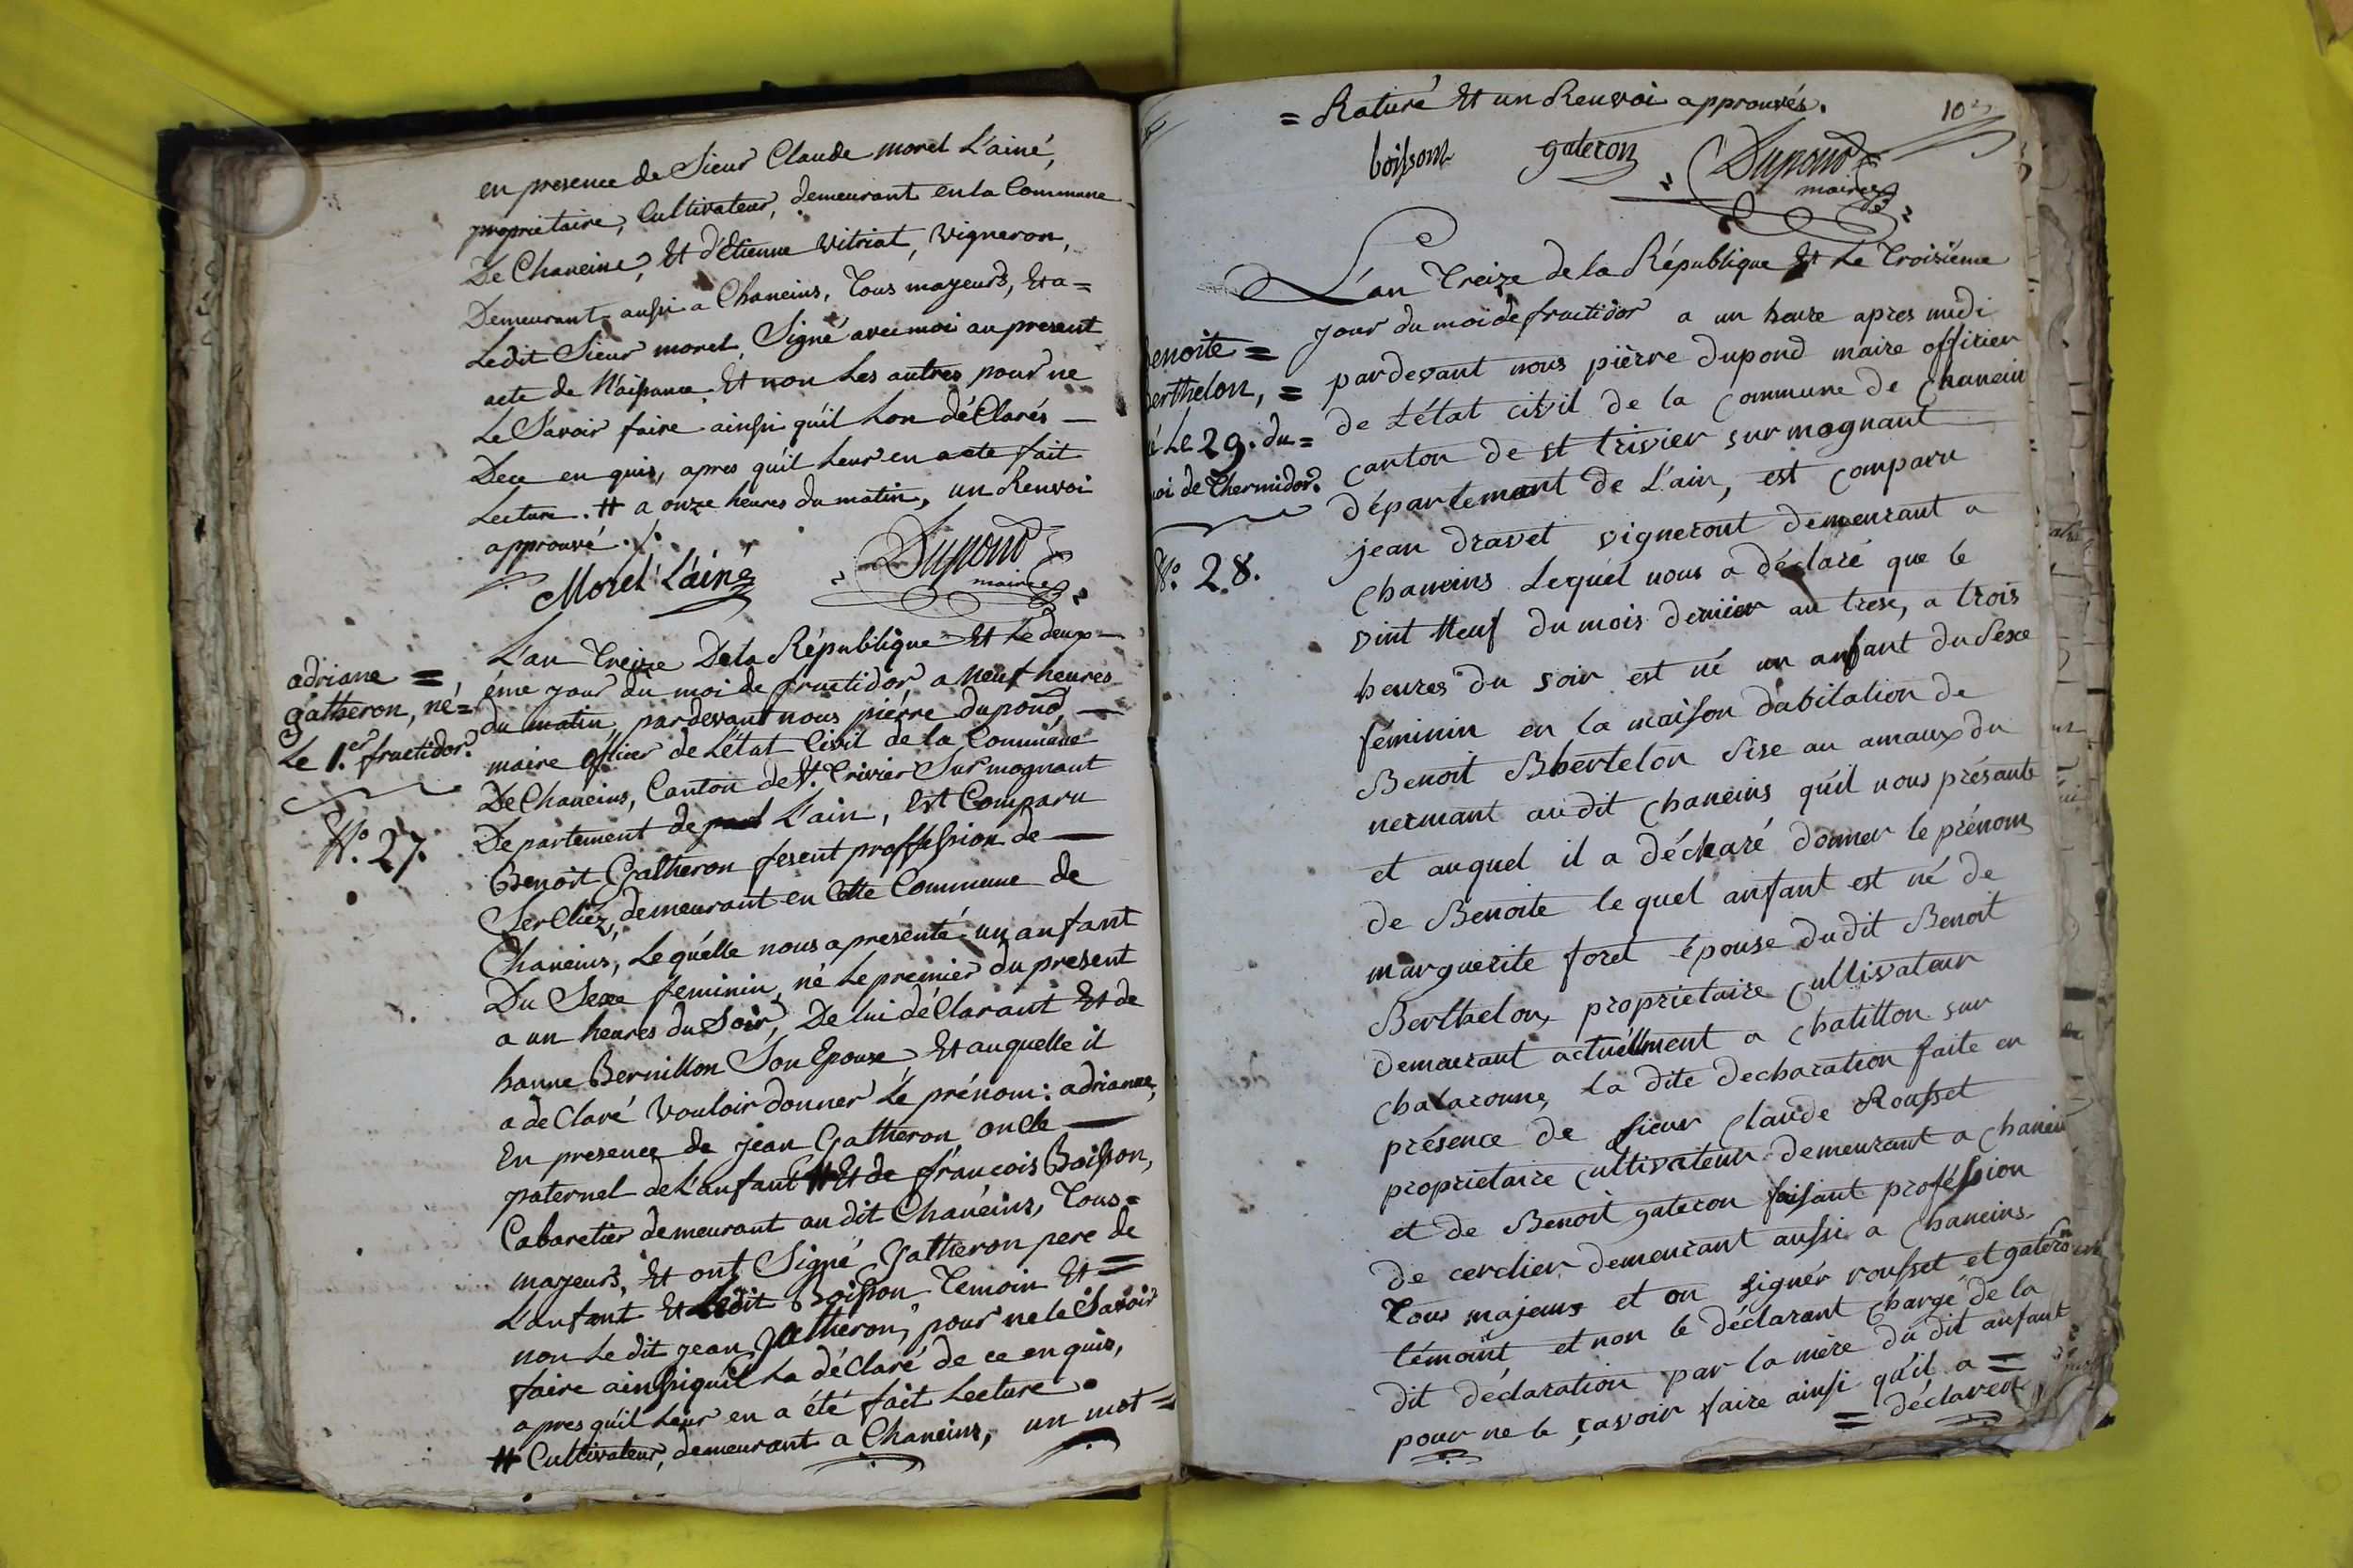 en presence de Sieur Claude morel L'ainé,
propriétaire, Cultivateur, demeurant en la Commune
De Chaneins, Et d'Etienne Vitriat, Vigneron,
Demeurant aussi a Chaneins, Tous mayeurs, Et a =
Ledit Sieur morel Signé avec moi au present
acte de Naissance Et non Les autres pour ne
Le Savoir faire ainsi qu'il Lon déClarés —
Dece en quis, apres qu'il Leur en acte fait
Lecture. # a onze heures du matin, un Renvoi
approuvé ./.
Morel L'ainé
Dupond
maire
adriane =
gatheron, né =
Le 1.er fructidor.
N.o 27.
L'an Treize Dela République Et Le deux —
éme jour du moi de fructidor a Neuf heures
du matin, pardevant nous pierre dupond, —
maire officier de L'état Civil de la Commune
De Chaneins, Canton de St. Trivier Sur mognant
Departement de L'ain, Est Comparu
Benoit Gatheron fesent proffession de —
SerCliez, demeurant en Cette Commune de
Chaneins, Lequélle nous a presenté un anfant
Du Sexe feminin, né Le premier du present
a un heures du Soir, De lui déClarant Et de
hanne Bernillon Son Epouse Et auquelle il
a deClaré Vouloir donner Le prénom : adrianne,
En presence de jean Gatheron oncle —
paternel de L'anfant # Et de françois Boisson,
Cabaretier demeurant au dit Chanéins, Tous =
mayeurs, Et ont Signé Gatheron pere de
L'anfant Et Ledit Boisson Temoin Et =
non Le dit jean Gatheron, pour ne le Savoir
faire ainsi qu'il La déClaré de ce en quis,
apres qu'il Leur en a été fait Lecture.
# Cultivateur, demeurant a Chaneins, un mot =
= Raturé Et un Renvoi approuvés.
102
boisson
gateron
Dupond
maire
enoite =
erthelon, =
é Le 29. du =
oi de Thermidor.
N.o 28.
L'an Treize de la République Et Le Troisiéme
jour du moi de fructidor a un heure apres midi
pardevant nous pièrre dupond maire offitier
de L'état citvil de la Commune de Chanein
canton de st trivier sur mognant
département de L'ain, est comparu
jean dravet vigneront demeurant a
Chaneins Lequel nous a déclaré que le
vint Neuf du mois dernier an trese, a trois
heures du soir est né un anfant du Sexe
féminin en la maison dabitation de
Benoit Bhertelon Sise au amaux du
nermant audit Chaneins qu'il nous présante
et auquel il a déclaré donner le prénom
de Benoite le quel anfant est né de
marguerite foret épouse dudit Benoit
Berthelon, propriétaire Cultivateur
demeurant actuéllment a chatillon sur
chalaronne, La dite declaration faite en
présence de sieur Claude Rousset
proprietaire Cultivateur demeurant a Chanein
et de Benoit gateron faisant proféssion
de cerclier demeurant aussi a Chaneins
Tous majeurs et on signér rousset et gateron
témoint et non le déclarant Chargé de la
dit déclaration par la mère du dit anfant
pour ne le çavoir faire ainsi qu'il a =
= déclarer